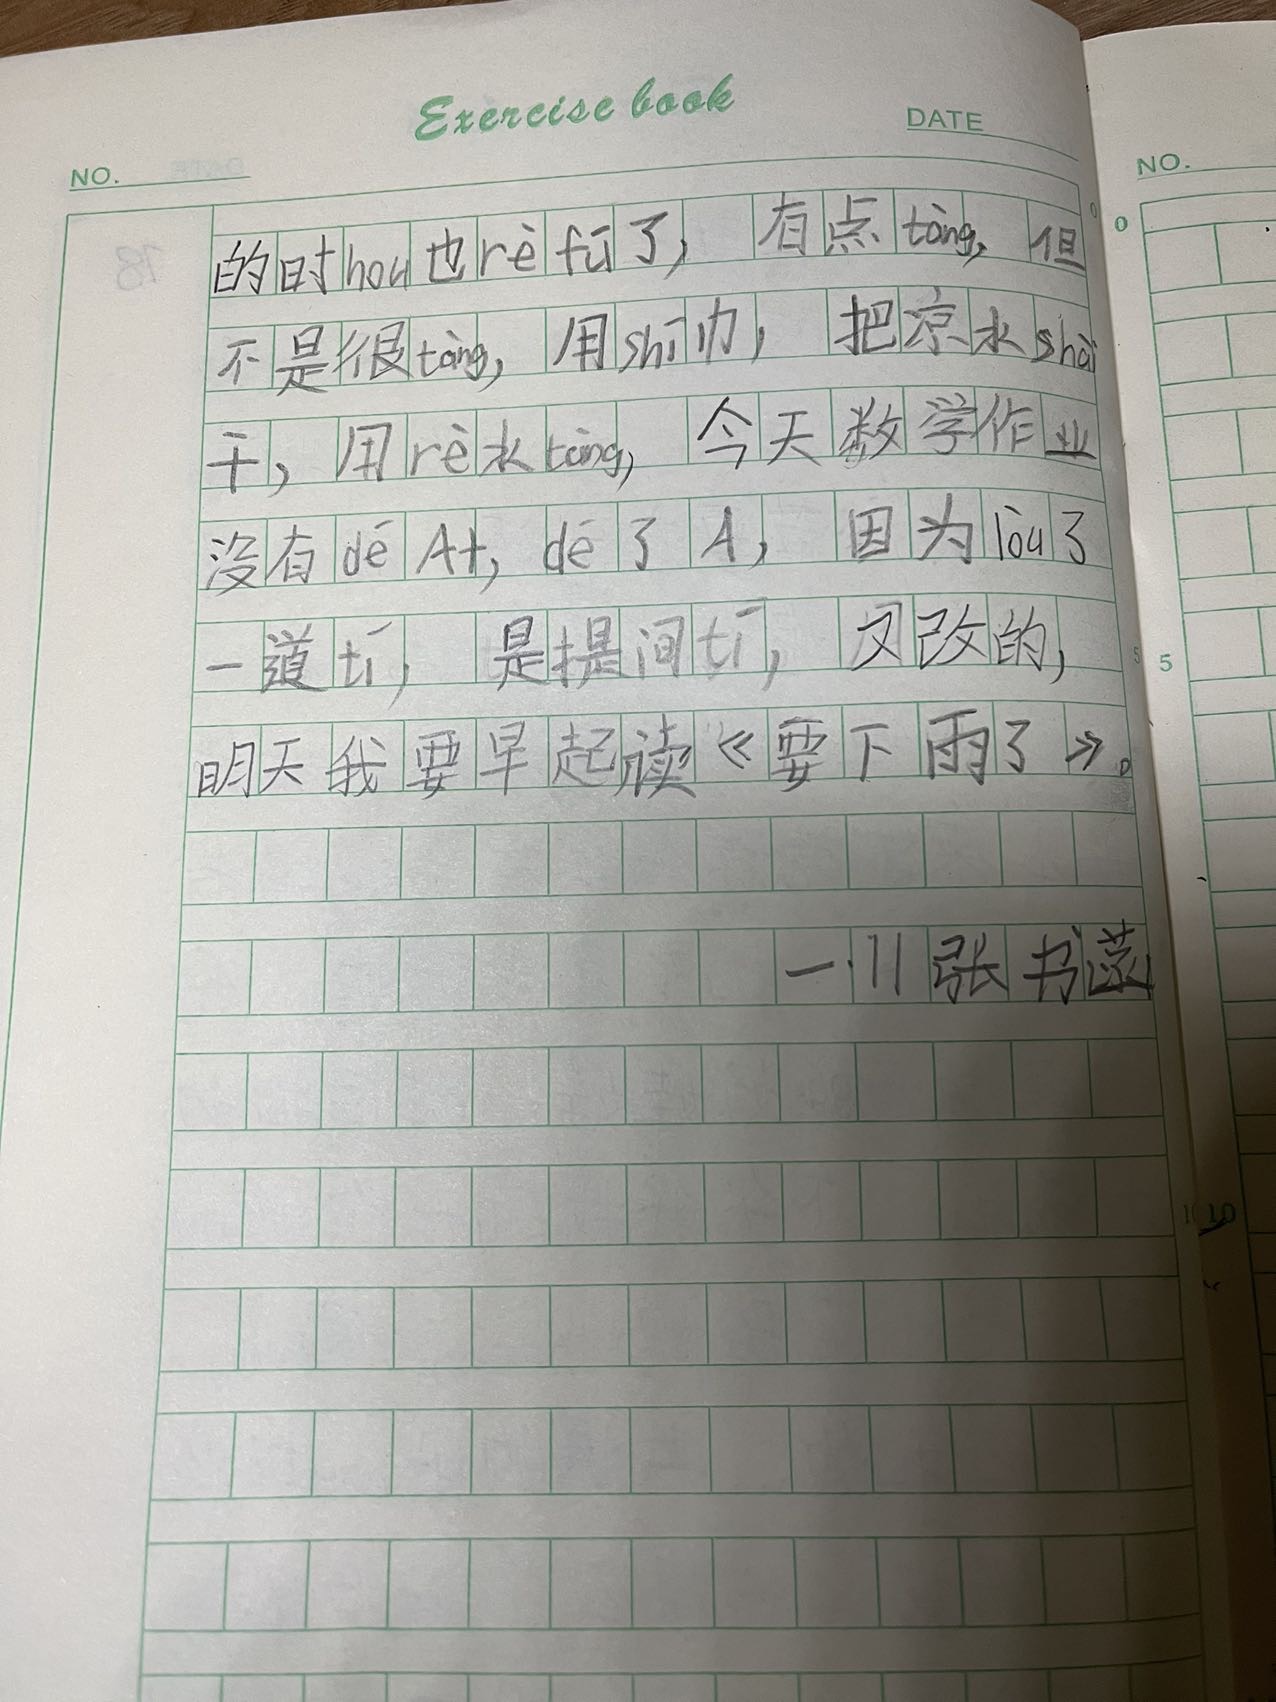 Exercise book
DATE
NO.
NO.
的时hou也rè fū了，有点tàng，但
不是很tàng，用shī巾，把凉水shài
干，用rè水tàng，今天数学作业
没有dé A+，dé了A，因为lòu了
一道tí，是提间tí，又改的，
明天我要早起读《要下雨了》。
一.11张书
0
0
5
5
10